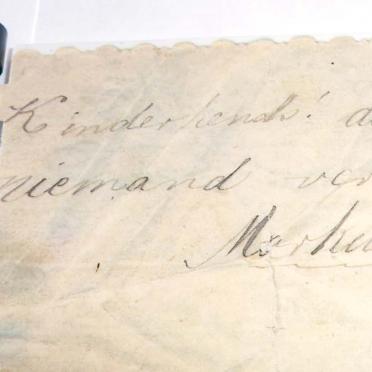 Kinderhend! d
niemand ver
Marku